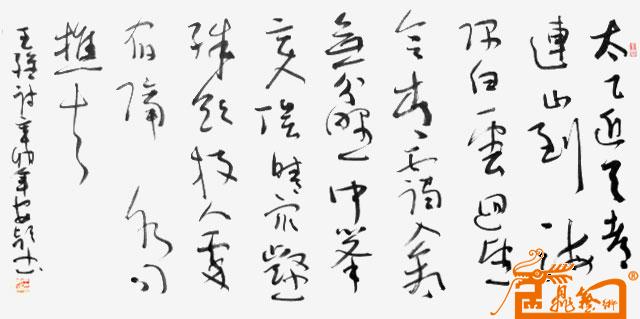 太乙近天都
連山到海
隅白雲迴望
合青靄入看
無分野中峰
变陰晴衆壑
殊欲投人處
宿隔水问
樵夫
王維诗辛卯年书